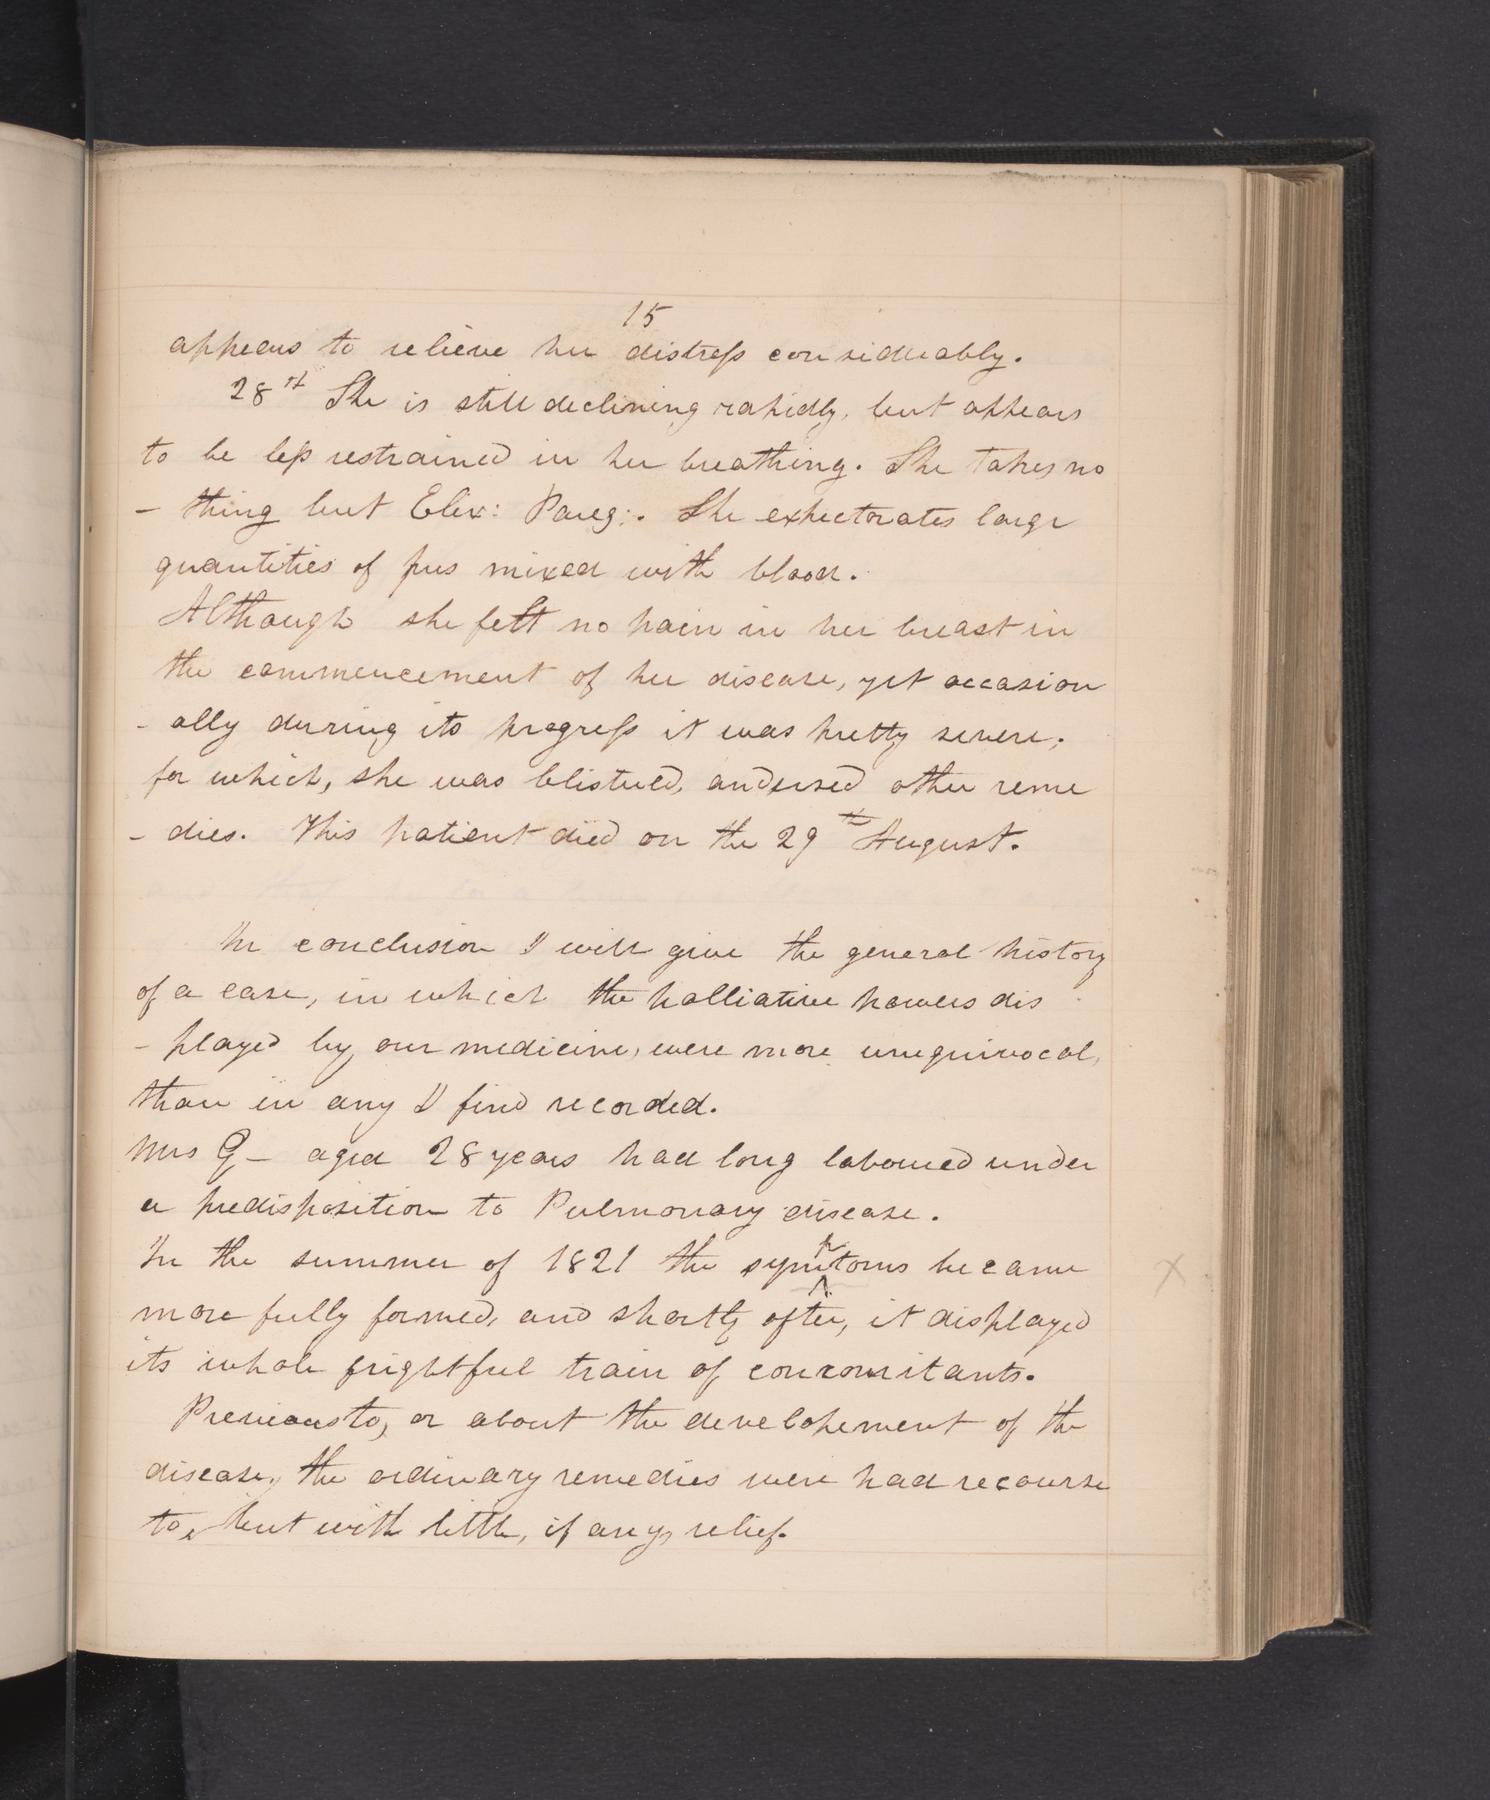 15
appears to relieve her distress considerably.
28th She is still declining rapidly, but appears
to be less restrained in her breathing. She takes no
- thing but Elix: Pareg:. She expectorates large
quantities of pus mixed with blood.
Although she felt no pain in her breast in
the commencement of her disease, yet occasion
- ally during its progress it was pretty severe;
for which, she was blistered, and used other reme
- dies. This patient died on the 29th August.
In conclusion I will give the general history
of a case, in which the palliative powers dis
- played by our medicine, were more unequivocal,
than in any I find recorded.
Mrs G- aged 28 years had long laboured under
a predisposition to Pulmonary disease.
In the summer of 1821 the symptoms became
more fully formed, and shortly after, it displayed
its whole frightful train of concomitants.
Previous to, or about the developement of the
disease, the ordinary remedies were had recourse
to, but with little, if any, relief.
X